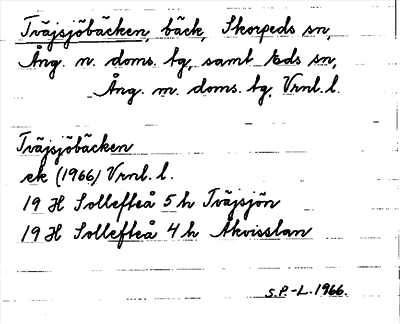 Tväjsjöbäcken, bäck, Skorpeds sn,
Ång. n. doms. tg, samt Eds sn,
Ång. m. doms. tg, Vrnl. l.
Tväjsjöbäcken
ek (1966) Vrnl. l.
19 H Sollefteå 5 h Tväjsjön
19 H Sollefteå 4 h Åkvisslan
S.P.-L. 1966.